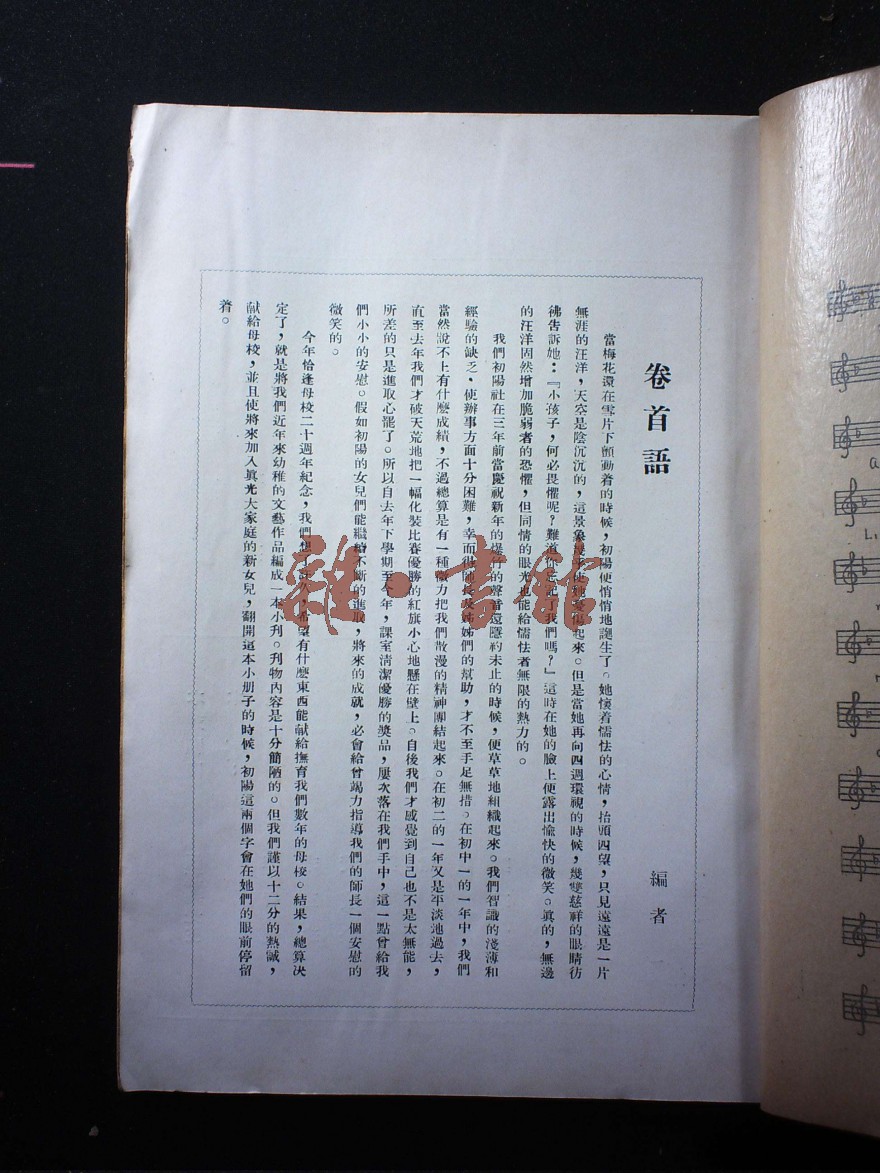 卷首語
編者
當梅花還在雪片下顫動着的時候，初陽便悄悄地誕生了。她懷着懦怯的心情，抬頭四望，只見遠遠是一片
無涯的汪洋，天空是陰沉沉的，這景象幾乎使她憂傷起來。但是當她再向四週環視的時候，幾雙慈祥的眼睛彷
彿告訴她：『小孩子，何必畏懼呢？難道你忘記了我們嗎？』這時在她的臉上便露出愉快的微笑。眞的，無邊
的汪洋固然增加脆弱者的恐懼，但同情的眼光也能給懦怯者無限的熱力的。
我們初陽社在三年前當慶祝新年的爆竹的聲音還隱約未止的時候，便草草地組織起來。我們智識的淺薄和
經驗的缺乏，使辦事方面十分困難，幸而得師長及姊姊們的幫助，才不至手足無措。在初中一的一年中，我們
當然說不上有什麽成績，不過總算是有一種微力把我們散漫的精神團結起來。在初二的一年又是平淡地過去，
直至去年我們才破天荒地把一幅化裝比賽優勝的紅旗小心地懸在壁上。自後我們才感覺到自己也不是太無能，
所差的只是進取心罷了。所以自去年下學期至今年，課室清潔優勝的獎品，屢次落在我們手中，這一點曾給我
們小小的安慰。假如初陽的女兒們能繼續不斷的進取，將來的成就，必會給曾竭力指導我們的師長一個安慰的
微笑的。
今年恰逢母校二十週年紀念，我們想了許久，希望有什麽東西能献給撫育我們數年的母校。結果，總算决
定了，就是將我們近年來幼稚的文藝作品編成一本小刋。刋物内容是十分簡陋的。但我們謹以十二分的熱誠，
献給母校，並且使將來加入眞光大家庭的新女兒，翻開這本小册子的時候，初陽這兩個字會在她們的眼前停留
着。
雜·書館